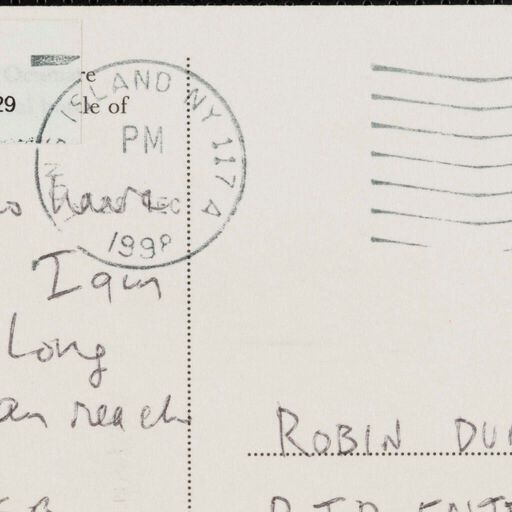 re
29 le of
ISLAND NY 117
PM
1998
I am
Long
an reach
ROBIN DU